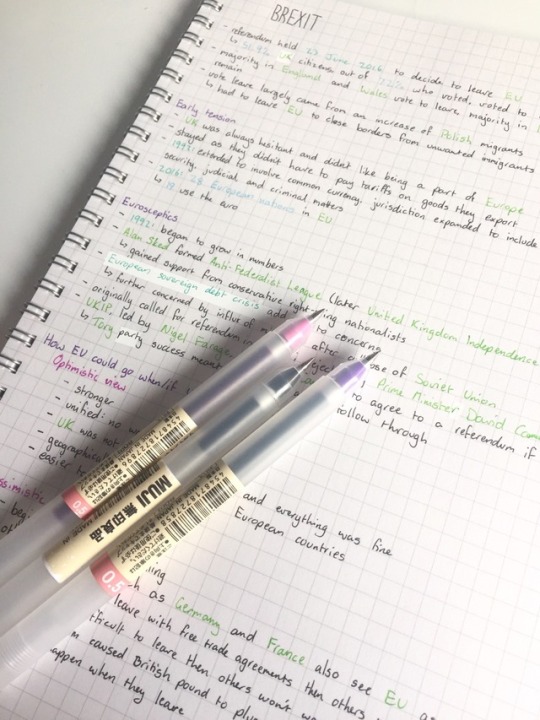 BREXIT
- referendum held 23 June 2016 to decide to leave EU
↳ 51.9% UK citizens out of 72.2% who voted, voted to
- majority in England and Wales vote to leave, majority in
remain
- vote leave largely came from an increase of Polish migrants
↳ had to leave EU to close borders from unwanted immigrants
Early tension
- UK was always hesitant and didn't like being a part of Europe
- stayed as they didn't have to pay tariffs on goods they export
- 1992: extended to involve common currency, jurisdiction expanded to include
security, judicial and criminal matters
- 2016: 28 European nations in EU
↳ 19 use the euro
Eurosceptics
- 1992: began to grow in numbers
- Alan Sked formed Anti-Federalist League (later United Kingdom Independence
↳ gained support from conservative right-wing nationalists
- European sovereign debt crisis add to concerns
↳ further concerned by influx of after
- originally called for referendum in rejec of Soviet Union
- UKIP, led by Nigel Farage, Prime Minister David Cam
↳ Tory party success meant to agree to a referendum if
follow through
How EU could go when/if
Optimistic view
- stronger
- unified: no
- UK was not
- geographical
easier
ssimistic
- beg and everything was fine
European countries
ing
h as Germany and France also see EU
leave with free trade agreements then others
difficult to leave then others won't
caused British pound to
appen when they leave
MUJI 無印良品
0.5